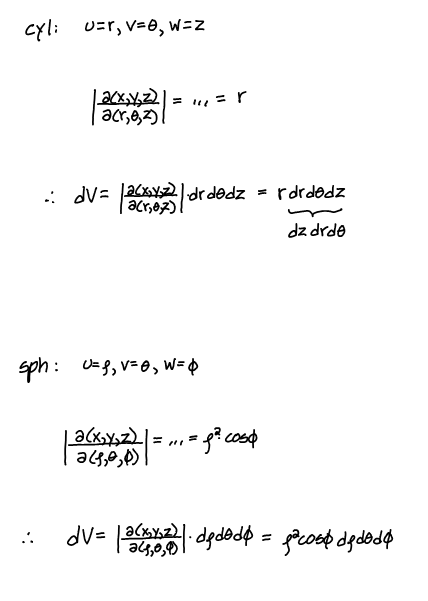 cyl: u=r, v=θ, w=z
|∂(x,y,z)/∂(r,θ,z)| = ... = r
∴ dV = |∂(x,y,z)/∂(r,θ,z)| · drdθdz = r drdθdz
dz drdθ
sph: u=ρ, v=θ, w=φ
|∂(x,y,z)/∂(ρ,θ,φ)| = ... = ρ² cosφ
∴ dV = |∂(x,y,z)/∂(ρ,θ,φ)| · dρdθdφ = ρ²cosφ dρdθdφ